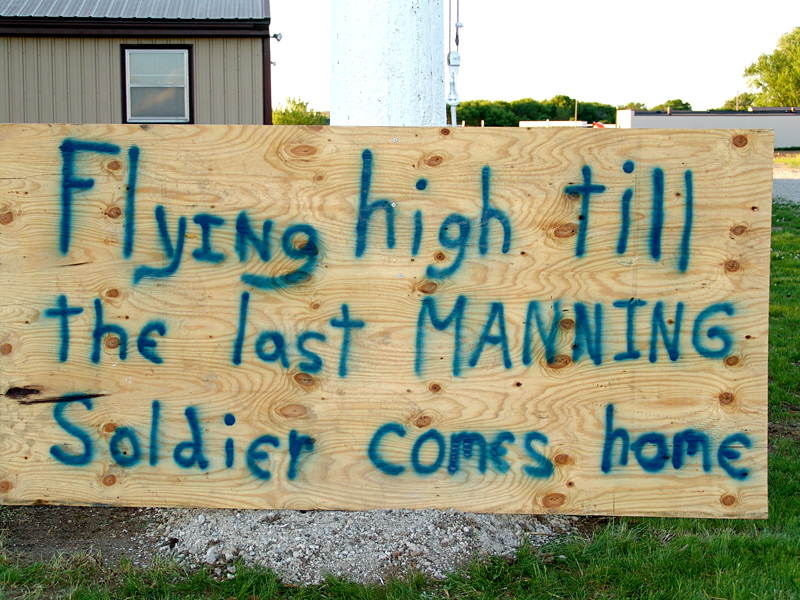 Flying high till
the last MANNING
Soldier comes home